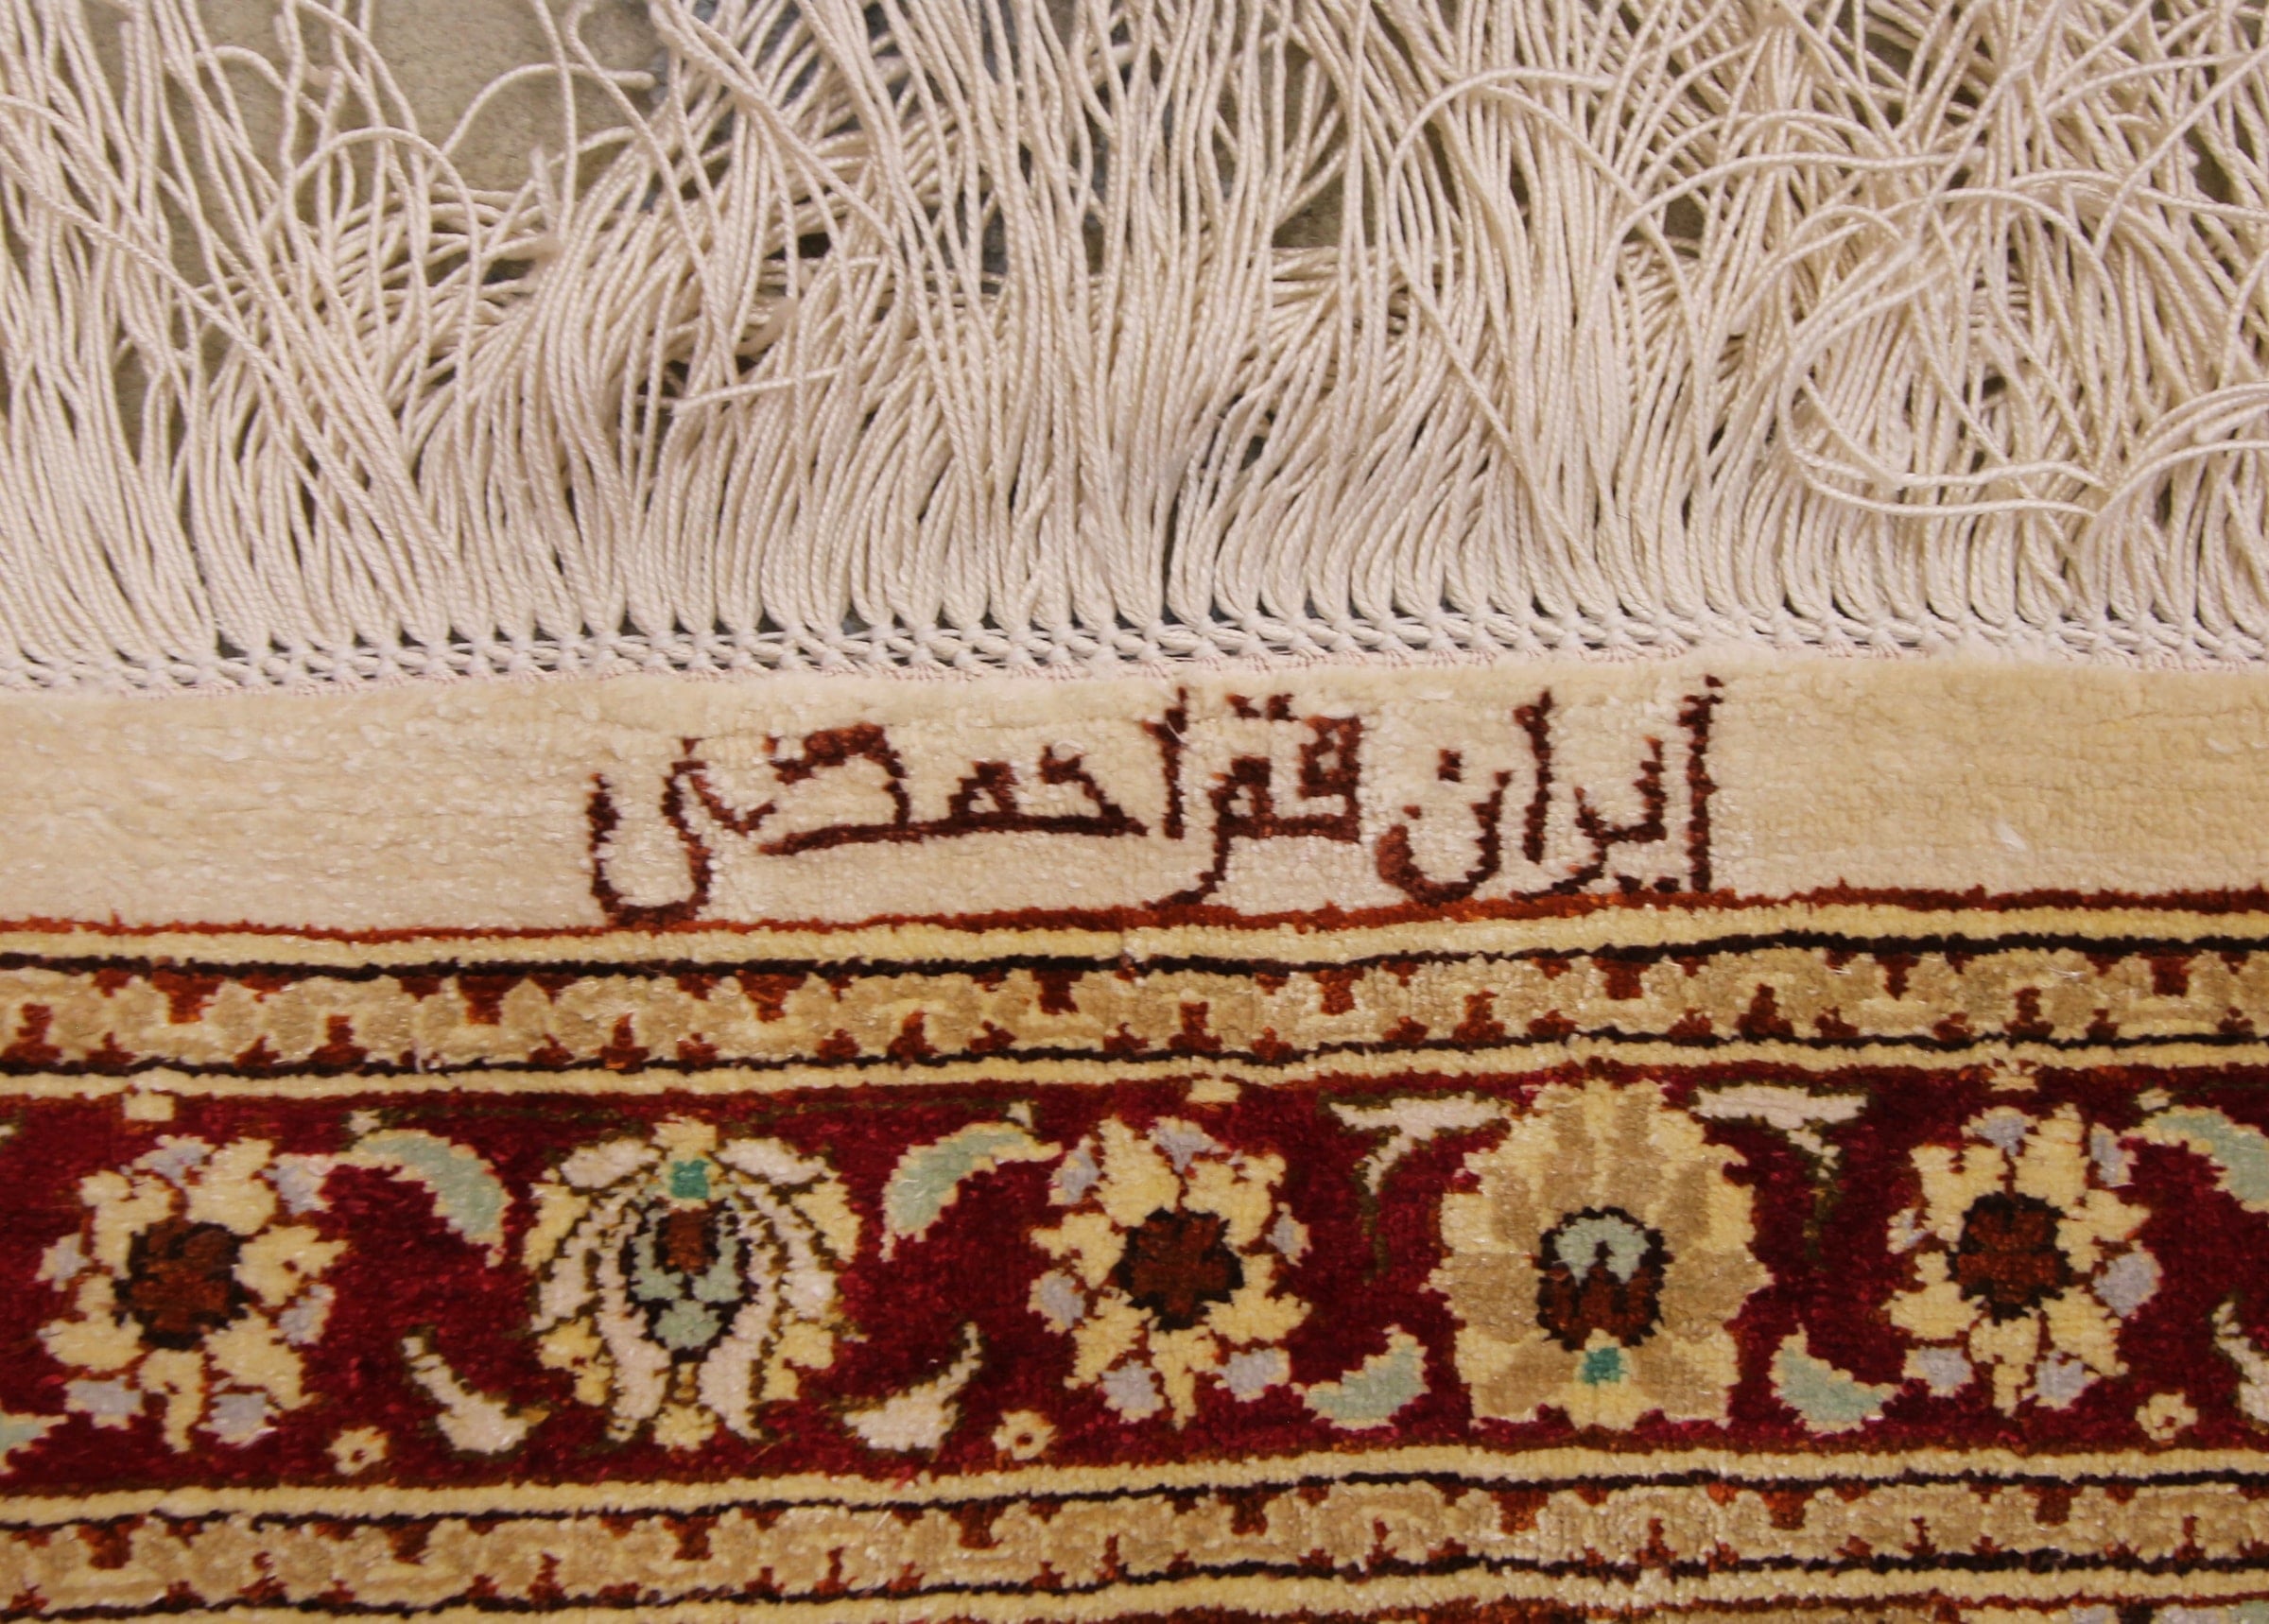 ایران قم احمدی